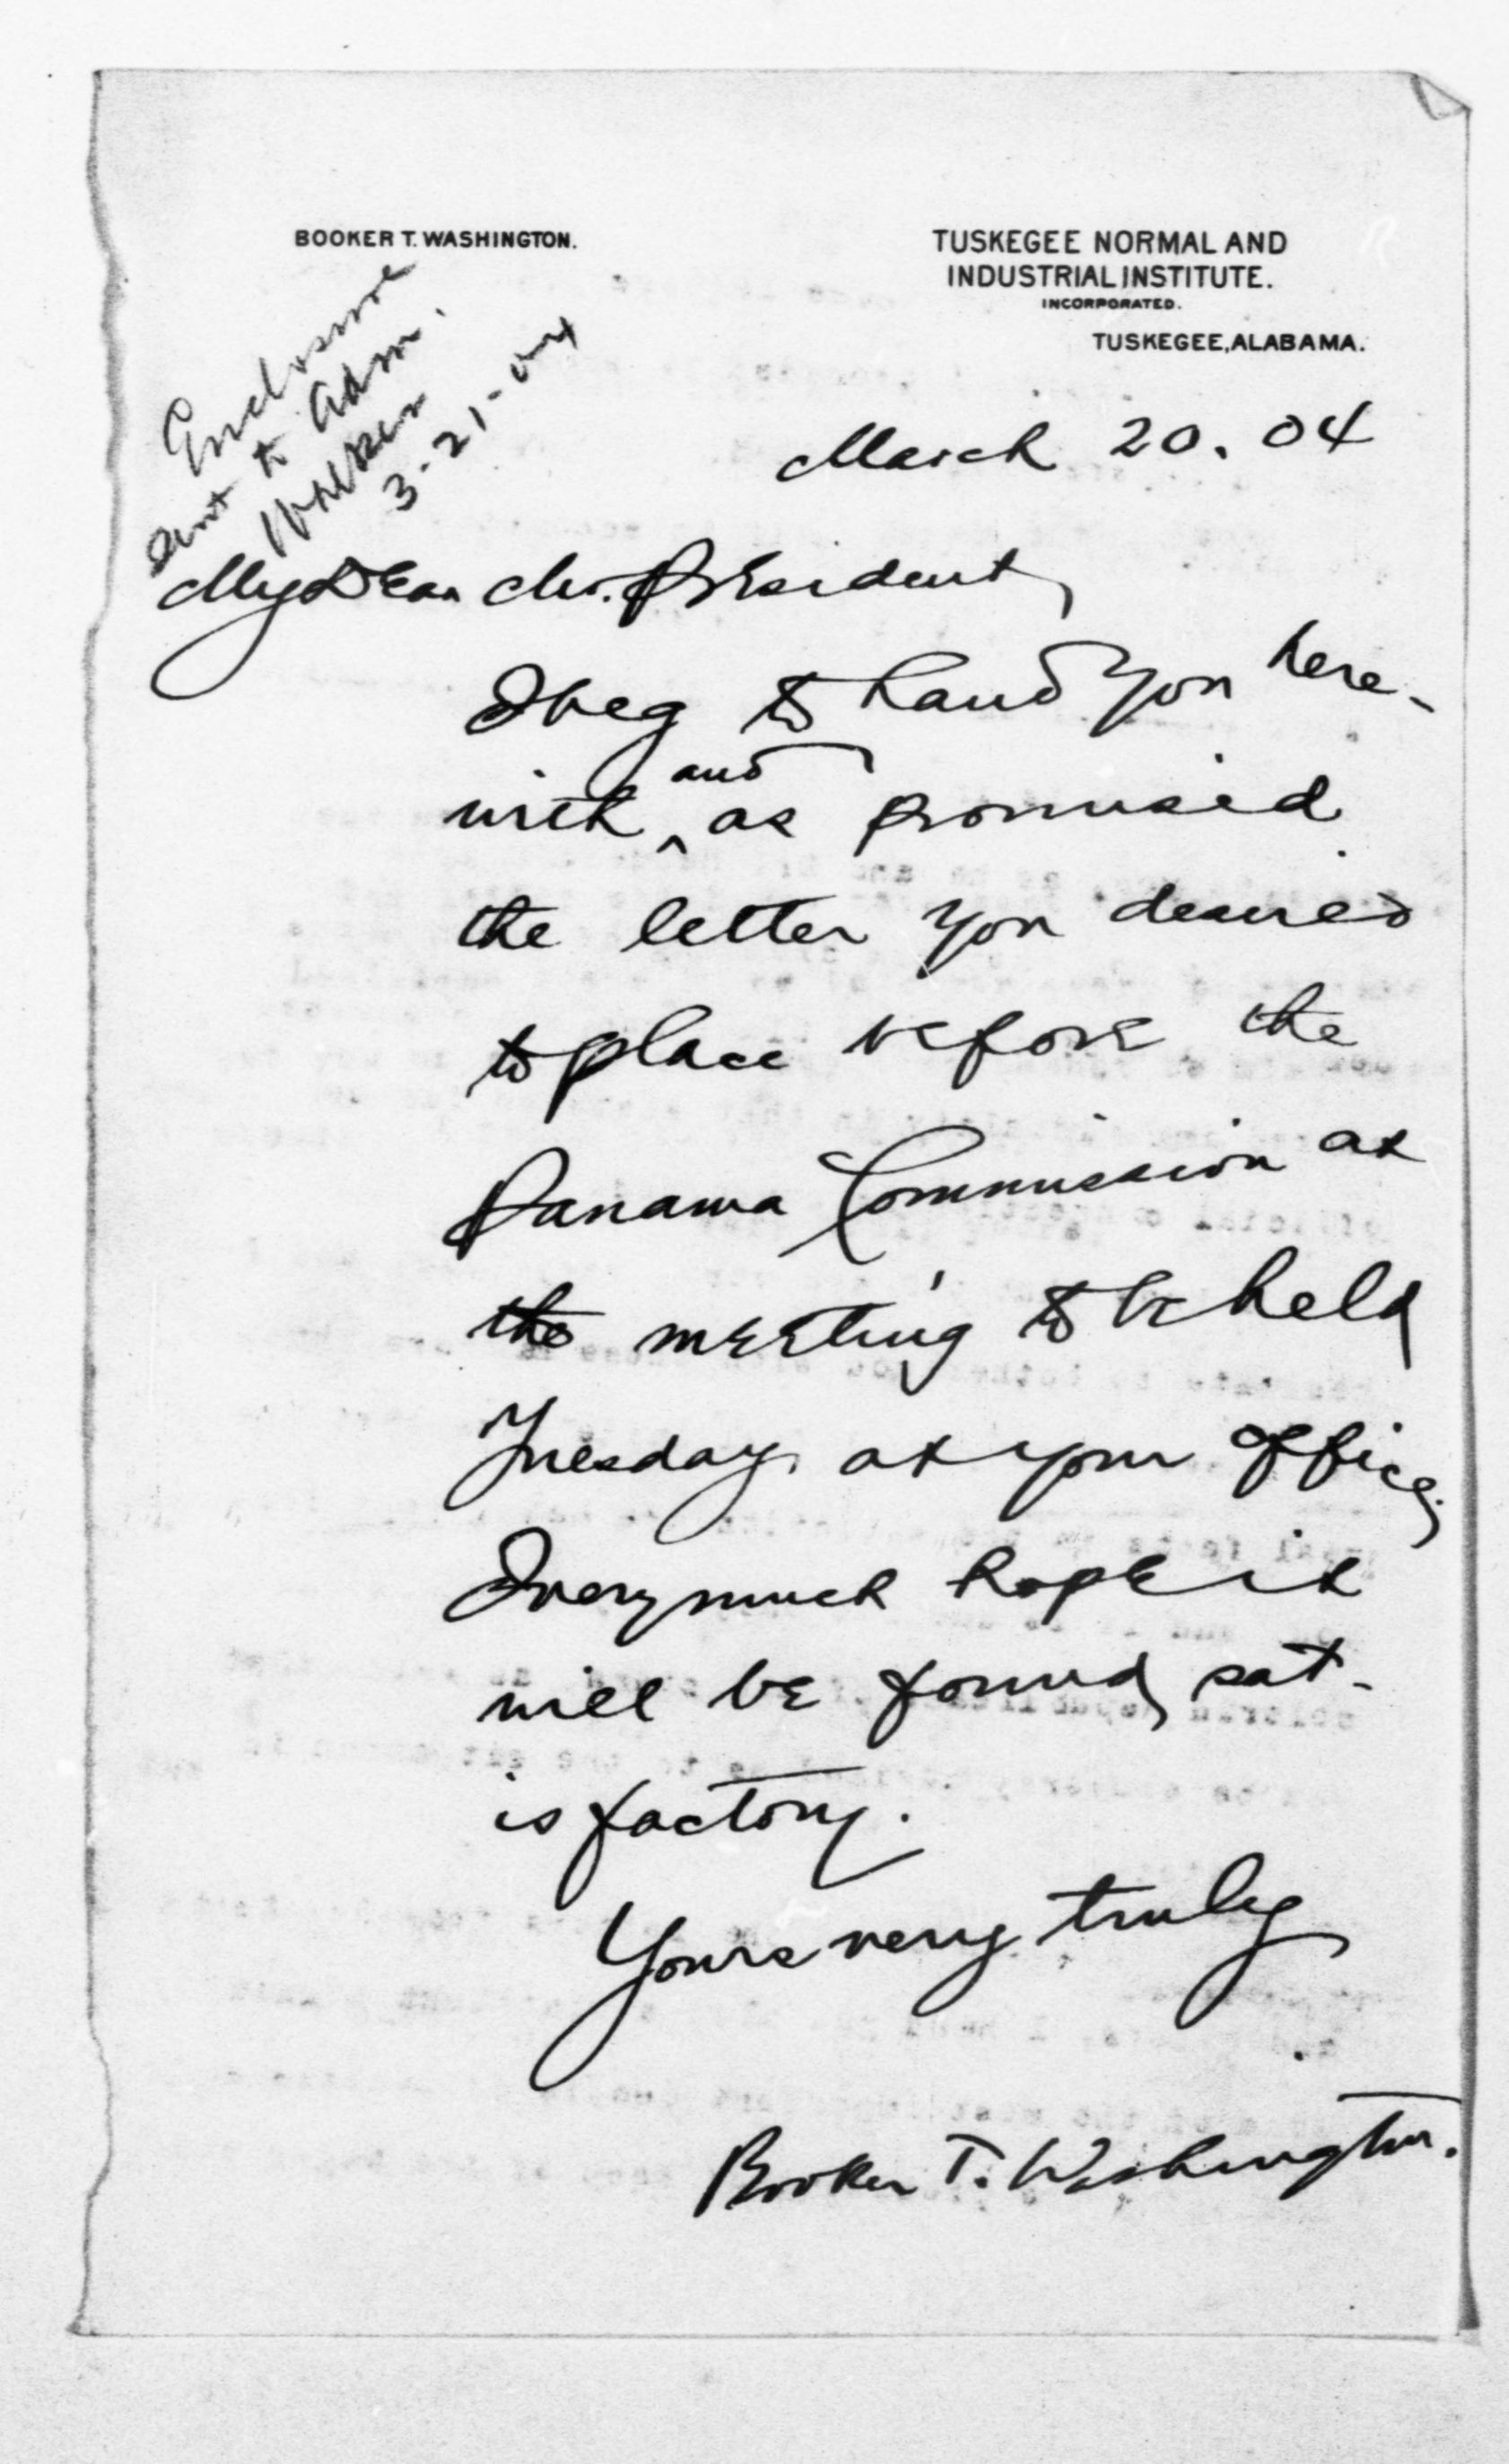 BOOKER T. WASHINGTON.
TUSKEGEE NORMAL AND
INDUSTRIAL INSTITUTE.
INCORPORATED.
TUSKEGEE, ALABAMA.
Enclosure
sent to Adm.
Walker
3-21-04
March 20. 04
My Dear Mr. President,
I beg to hand you here-
and
with ‸ as promised
the letter you desired
to place before the
Panama Commission at
the meeting to be held
Tuesday at your office.
I very much hope it
will be found sat-
isfactory.
Yours very truly
Booker T. Washington.